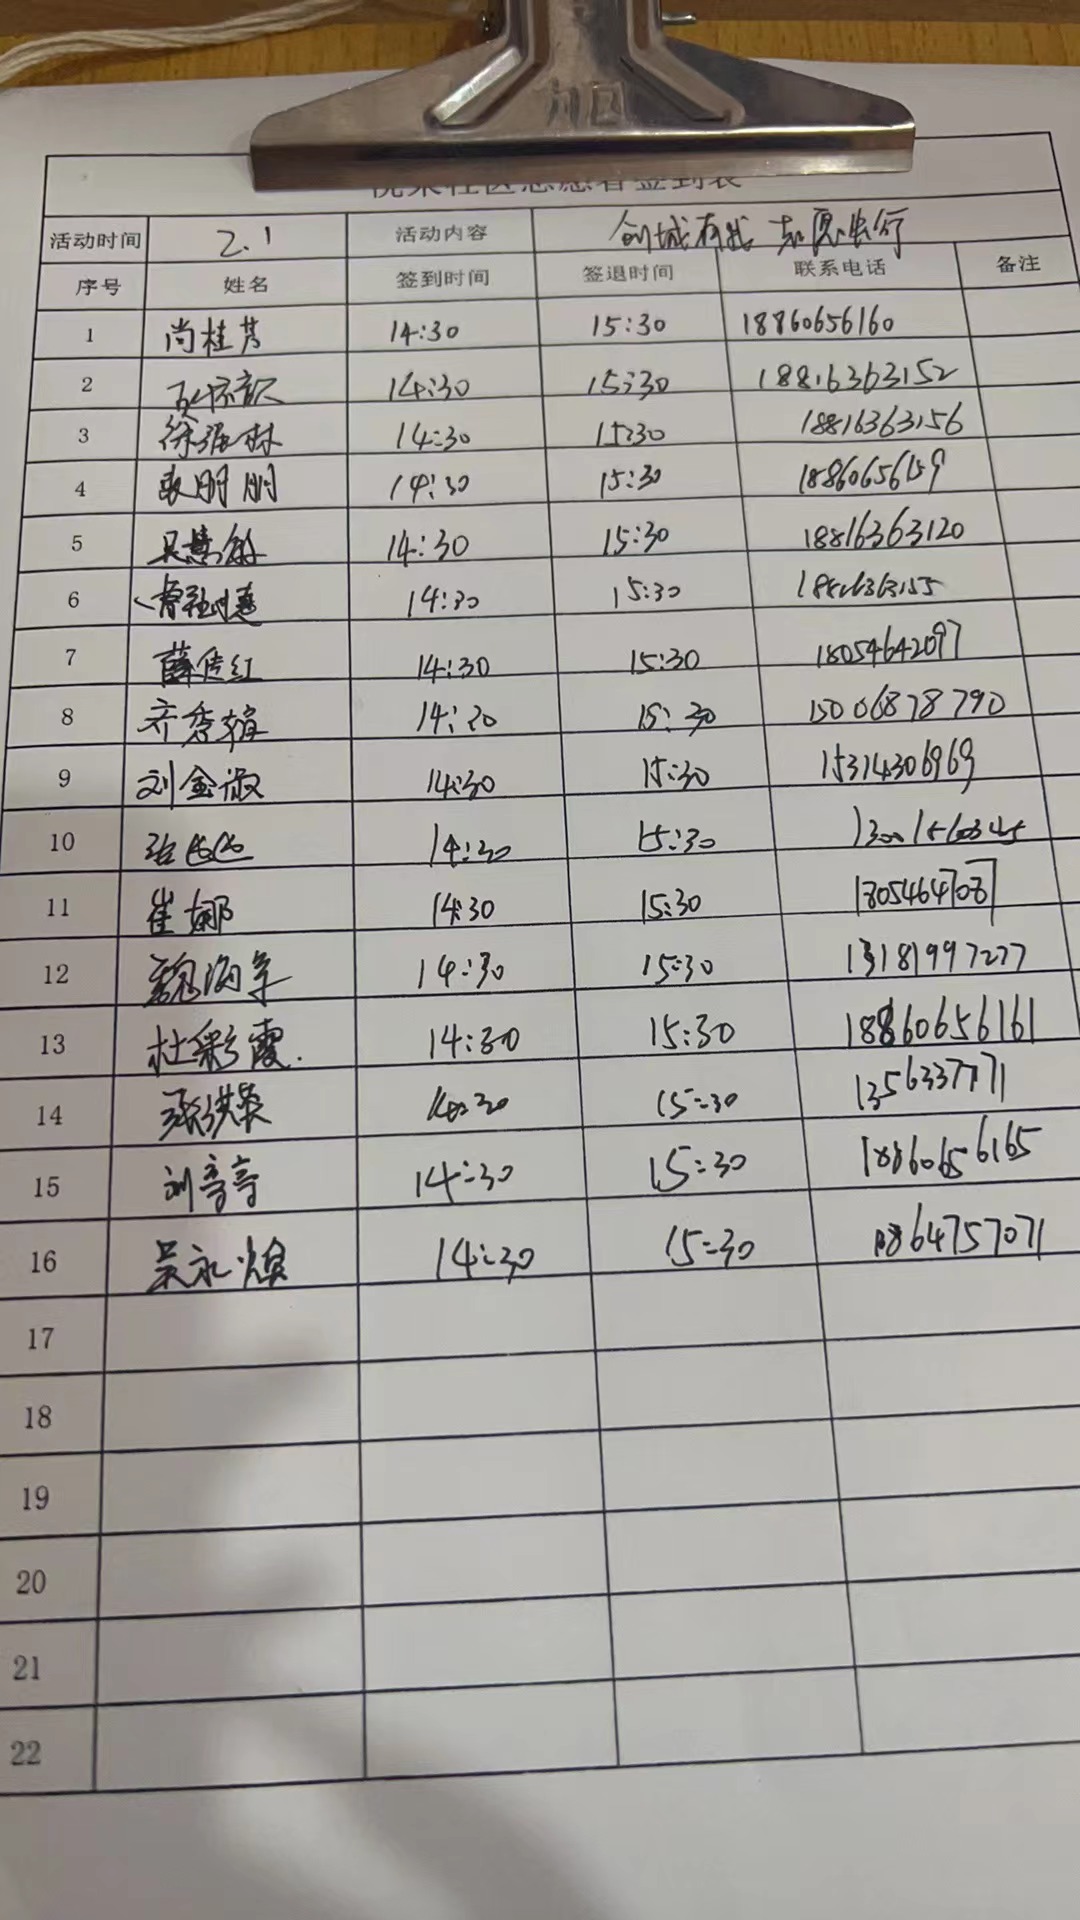 社区志愿者签到表
活动时间 2.1 活动内容 创城有我 志愿出行
序号 姓名 签到时间 签退时间 联系电话 备注
1 尚桂芳 14:30 15:30 18860656160
2 14:30 15:30 18816363152
3 14:30 15:30 18816363156
4 明明 14:30 15:30 18860656159
5 吴慧敏 14:30 15:30 18816363120
6 14:30 15:30
7 薛传红 14:30 15:30 18054642097
8 齐秀娟 14:30 15:30 15006878790
9 刘金淑 14:30 15:30 15314306969
10 14:30 15:30
11 崔娜 14:30 15:30 18054647087
12 魏海军 14:30 15:30 13181997277
13 杜彩霞. 14:30 15:30 18860656161
14 张洪英 14:30 15:30
15 刘亭亭 14:30 15:30 18860656165
16 吴永焕 14:30 15:30 18864757071
17
18
19
20
21
22